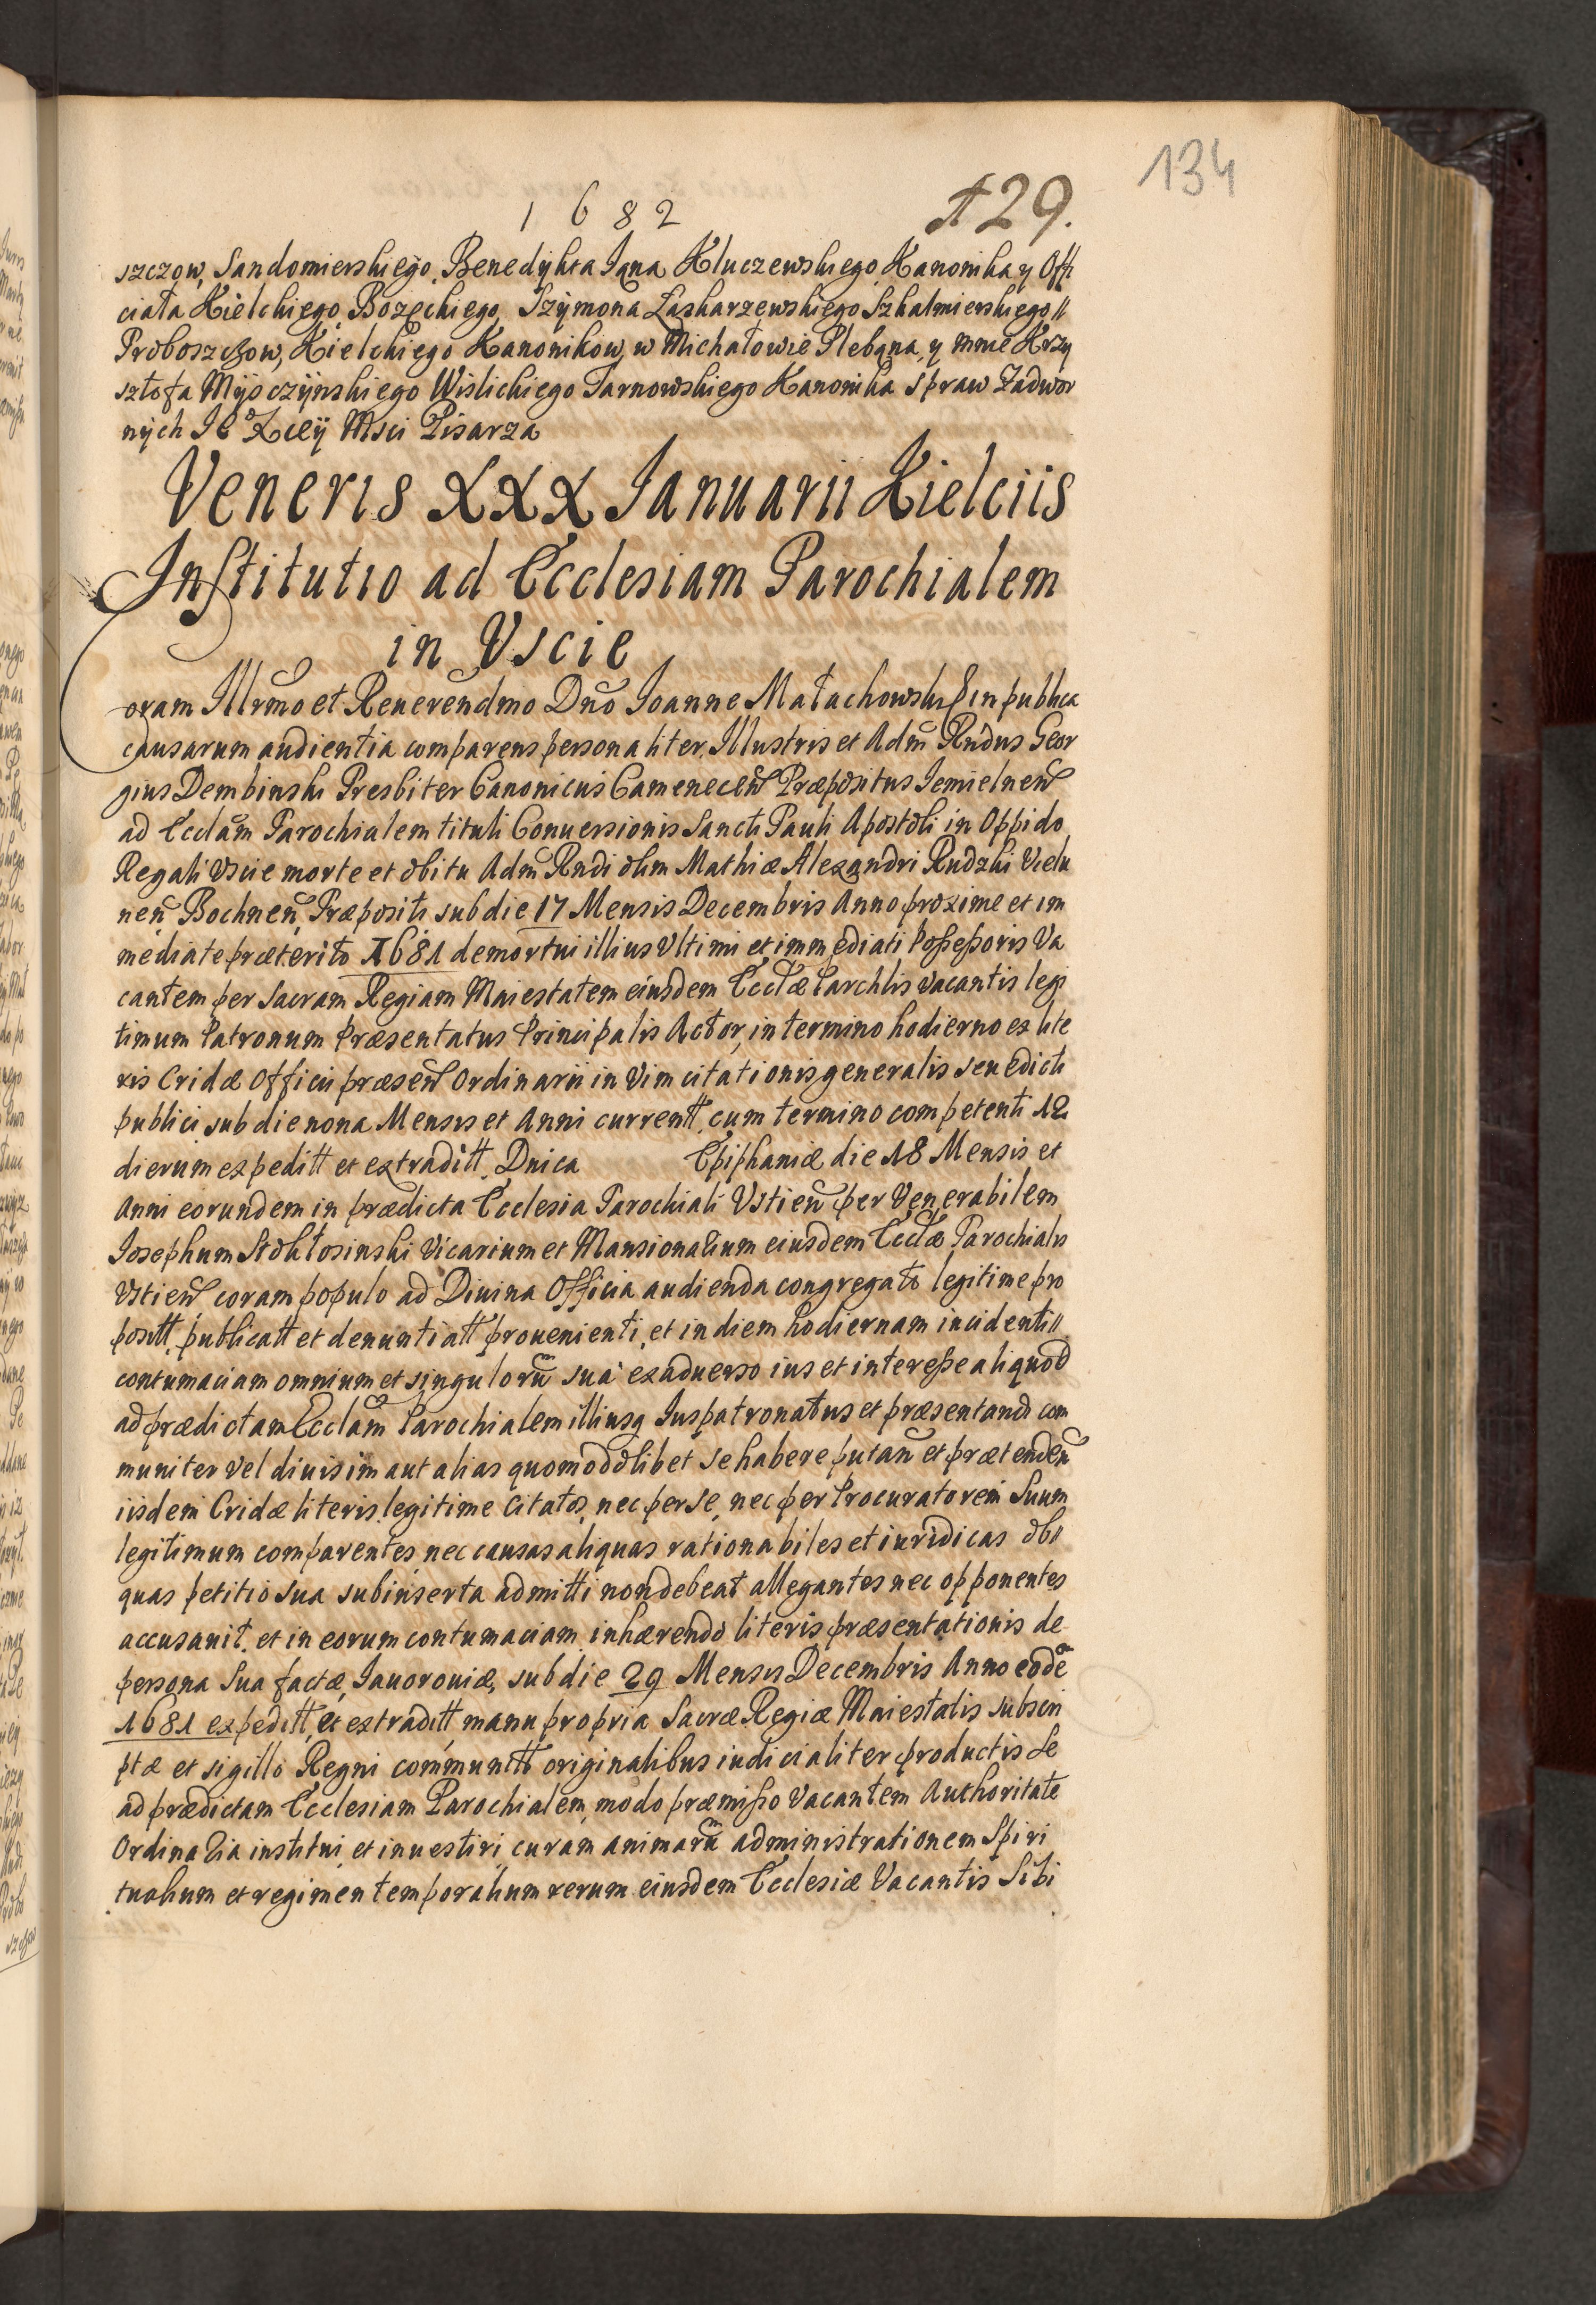 134
1682
129.
szczow, Sandomierskiego, Benedykta Jana Kluczewskiego Kanonika y Offi
ciała Kielckiego Bozęckiego, Szymona Łaskarzewskiego Szkalmierskiego //
Proboszczow, Kielckiego Kanonikow, w Michałowie Plebana, y mnie Krzy
sztofa Mysczynskiego Wislickiego Tarnowskiego Kanonika spraw Zadwor
nych Mści Pisarza
Veneris XXX Ianuarii Kielciis
Institutio ad Ecclesiam Parochialem
in Vscie
Coram Illrmo et Reuerendmo Dno Ioanne Małachowski Epin publica
causarum audientia comparens personaliter, Illustris et Adm Rndus Geor
gius Dembinski Presbiter Canonicus Camenecen Præpositus Iemielnen
ad Ecclam Parochialem tituli Conuersionis Sancti Pauli Apostoli in Oppido
Regali Vscie morte et obitu Adm Rndi olim Mathiæ Alexandri Rudzki Vielu
nen, Bochnen, Præpositi sub die 17 Mensis Decembris Anno proxime et im
mediate præterito 1681 demortui illius Vltimi et immediati Possessoris Va
cantem per Sacram Regiam Maiestatem eiusdem Ecclæ Parchlis vacantis legi
timum Patronum Præsentatus Principalis Actor, in termino hodierno ex lite
ris Cridæ Officii præsen Ordinarii in Vim citationis generalis seu edicti
publici sub die nona Mensis et Anni currentt. cum termino competenti 12
dierum expeditt et extraditt. Dnica Epiphaniæ die 18 Mensis et
Anni eorundem in prædicta Ecclesia Parochiali Vstien per Venerabilem
Iosephum Stokłosinski Vicarium et Mansionarium eiusdem Ecclæ Parochialis
Vstien coram populo ad Diuina Officia audienda congregato legitime pro
positt, publicatt et denuntiatt prouenienti, et in diem hodiernam incidenti //
contumaciam omnium et singuloru sua ex aduerso ius et interesse aliquod
ad prædictam Ecclam Parochialem illiusq Iuspatronatus et præsentandi com
muniter vel diuisim aut alias quomodolibet se habere putan et prætenden
iisdem Cridæ literis legitime citatos, nec per se, nec per Procuratorem Suum
legitimum comparentes, nec causas aliquas rationabiles et iuridicas ob //
quas petitio sua subinserta admitti non debeat allegantes nec opponentes
accusauit. et in eorum contumaciam inhærendo literis præsentationis de
persona Sua factæ, Iauorouiæ, sub die 29 Mensis Decembris Anno eode
1681 expeditt, et extraditt manu propria Sacræ Regiæ Maiestatis subscri
ptæ et sigillo Regni communitt originalibus iudicialiter productis Se
ad prædictam Ecclesiam Parochialem, modo præmisso Vacantem Authoritate
Ordinaria institui, et inuestiri curam animaru administrationem Spiri
tualium et regimen temporalium rerum eiusdem Ecclesiæ Vacantis Sibi